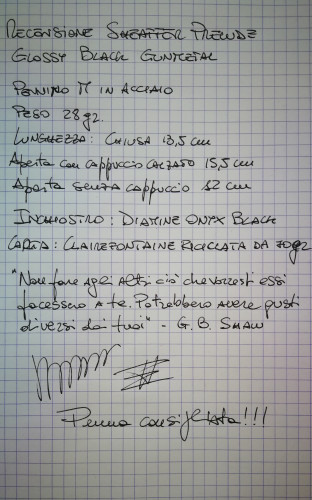 RECENSIONE SHEAFFER PRELUDE
GLOSSY BLACK GUNMETAL
PENNINO M IN ACCIAIO
PESO 28 gr.
LUNGHEZZA: CHIUSA 13,5 cm
Aperta con cappuccio calzato 15,5 cm
Aperta senza cappuccio 12 cm
INCHIOSTRO: DIAMINE ONYX BLACK
CARTA: CLAIREFONTAINE RICICLATA DA 70 gr
"Non fare agli altri ciò che vorresti essi
facessero a te. Potrebbero avere gusti
diversi dai tuoi" - G. B. SHAW
Penna consigliata!!!